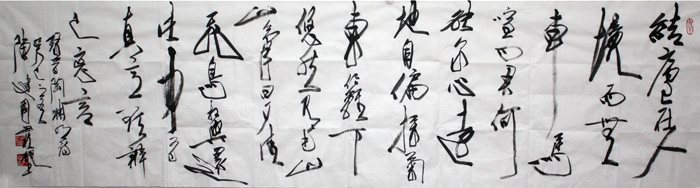 結廬在人
境而無
車馬
喧問君何
能爾心遠
地自偏採菊
東籬下
悠然見南山
山氣日夕佳
飛鳥相與還
此中有
真意欲辨
已忘言